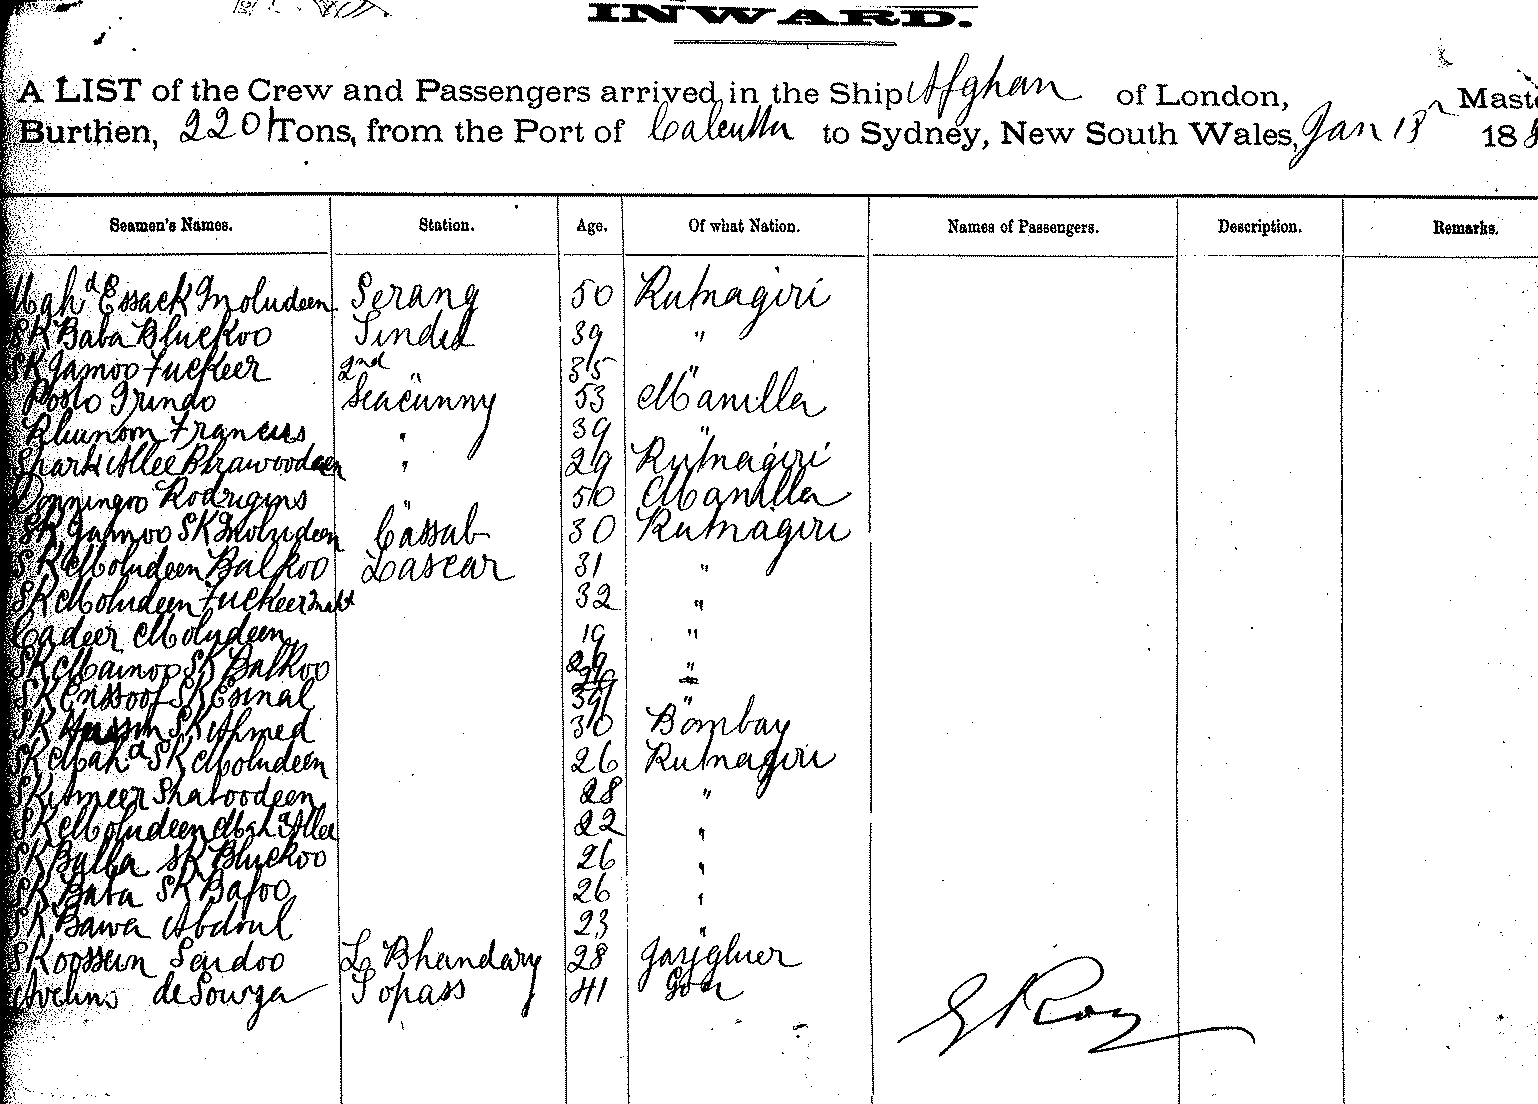 INWARD.
A LIST of the Crew and Passengers arrived in the Ship Afghan of London,
Burthen, 2201 Tons, from the Port of Calcutta to Sydney, New South Wales, Jan 18
Seamen's Names. Station. Age. Of what Nation. Names of Passengers. Description. Remarks.
Mahd Essack Moludeen Serang 50 Rutnagiri
SK Baba Bluckoo Tindil 39 "
SK Jamoo Fuckeer 2nd " 35 "
Grindo Seacunny 53 Manilla
Francis " 39 "
Allee " 29 Rutnagiri
Domingoo Rodrigins " 50 Manilla
SK Jamoo SK Moludeen Cassab 30 Rutnagiri
SK Moludeen Balkoo Lascar 31 "
SK Moludeen Fuckeer 32 "
Cadeer Moludeen 19 "
SK Mainoo SK Balkoo 29 "
SK Essoof SK Esinal 39 "
SK Hassin SK Ahmed 30 Bombay
SK Mahd SK Moludeen 26 Rutnagiri
SK Ameer Shaboodeen 28 "
SK Moludeen Mahd Allee 22 "
SK Balla SK Bluckoo 26 "
SK Baba SK Bafoo 26 "
SK Bawa Abdoul 23 "
SK Oossein Saidoo L Bhandary 28
Avelins de Souza Topass 41 Goa